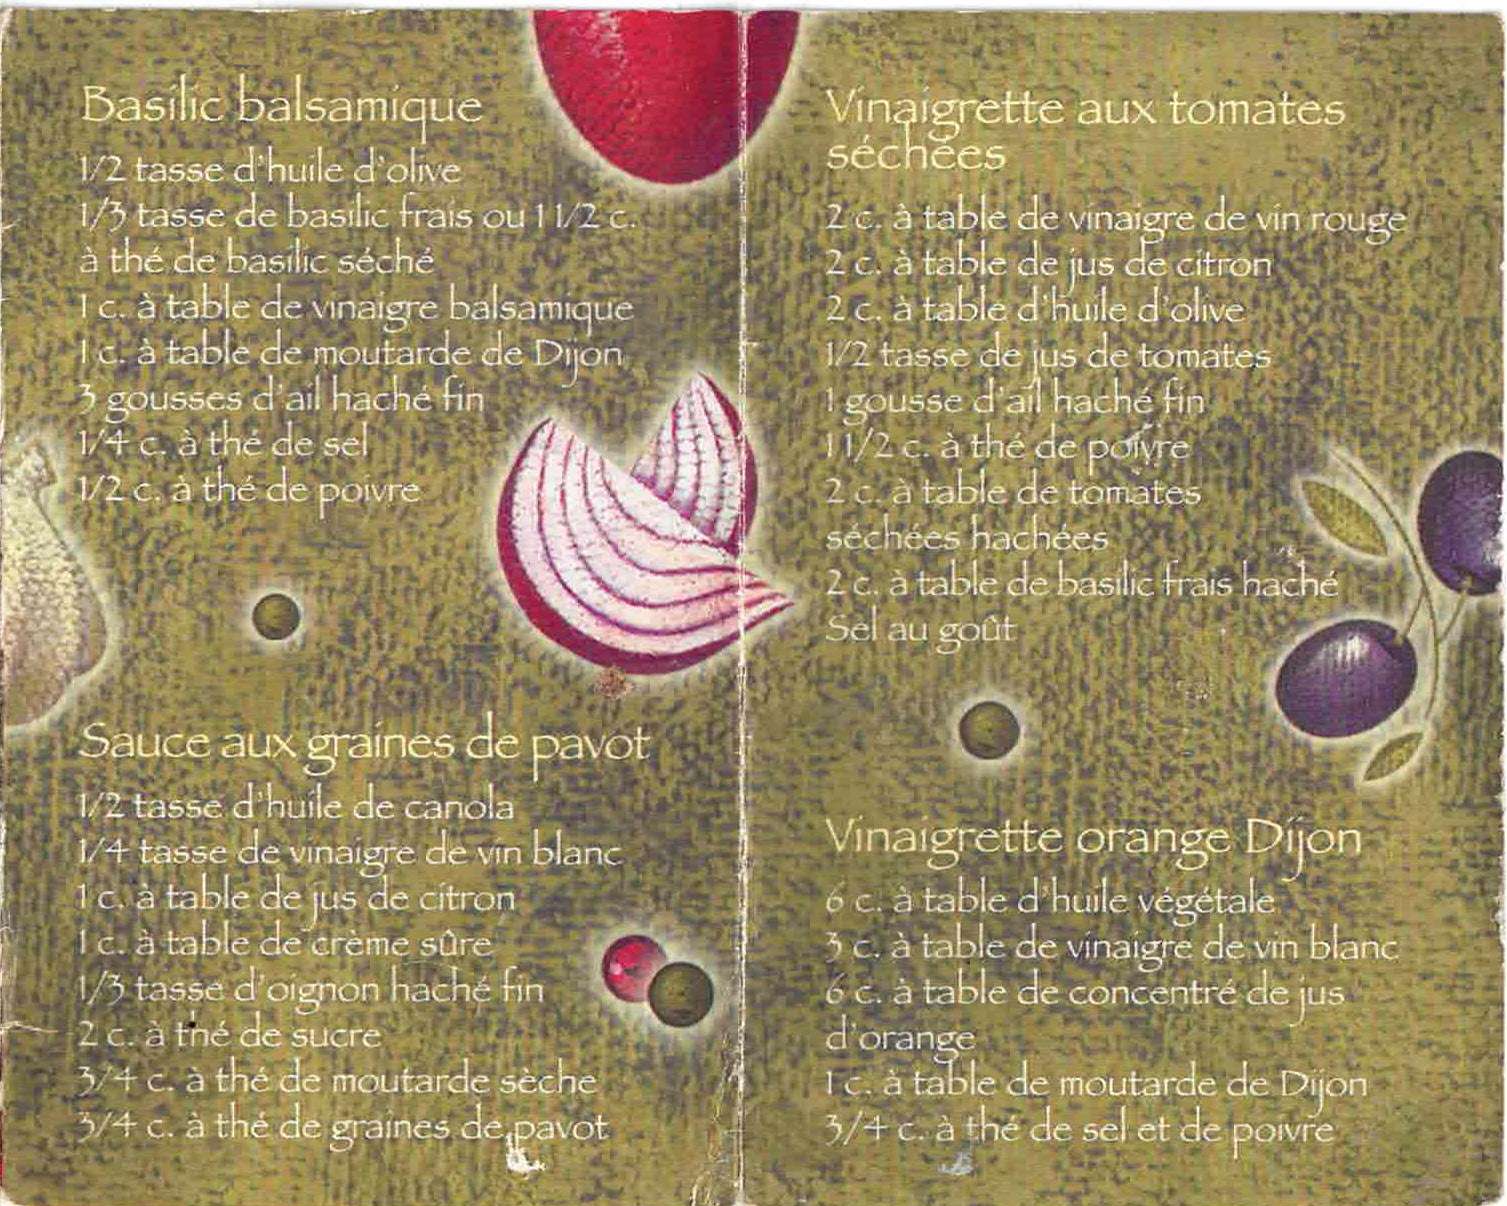 Basilic balsamique
1/2 tasse d'huile d'olive
1/3 tasse de basilic frais ou 1 1/2 c.
à thé de basilic séché
1 c. à table de vinaigre balsamique
1 c. à table de moutarde de Dijon
3 gousses d'ail haché fin
1/4 c. à thé de sel
1/2 c. à thé de poivre
Sauce aux graines de pavot
1/2 tasse d'huile de canola
1/4 tasse de vinaigre de vin blanc
1 c. à table de jus de citron
1 c. à table de crème sûre
1/3 tasse d'oignon haché fin
2 c. à thé de sucre
3/4 c. à thé de moutarde sèche
3/4 c. à thé de graines de pavot
Vinaigrette aux tomates
séchées
2 c. à table de vinaigre de vin rouge
2 c. à table de jus de citron
2 c. à table d'huile d'olive
1/2 tasse de jus de tomates
1 gousse d'ail haché fin
1 1/2 c. à thé de poivre
2 c. à table de tomates
séchées hachées
2 c. à table de basilic frais haché
Sel au goût
Vinaigrette orange Dijon
6 c. à table d'huile végétale
3 c. à table de vinaigre de vin blanc
6 c. à table de concentré de jus
d'orange
1 c. à table de moutarde de Dijon
3/4 c. à thé de sel et de poivre